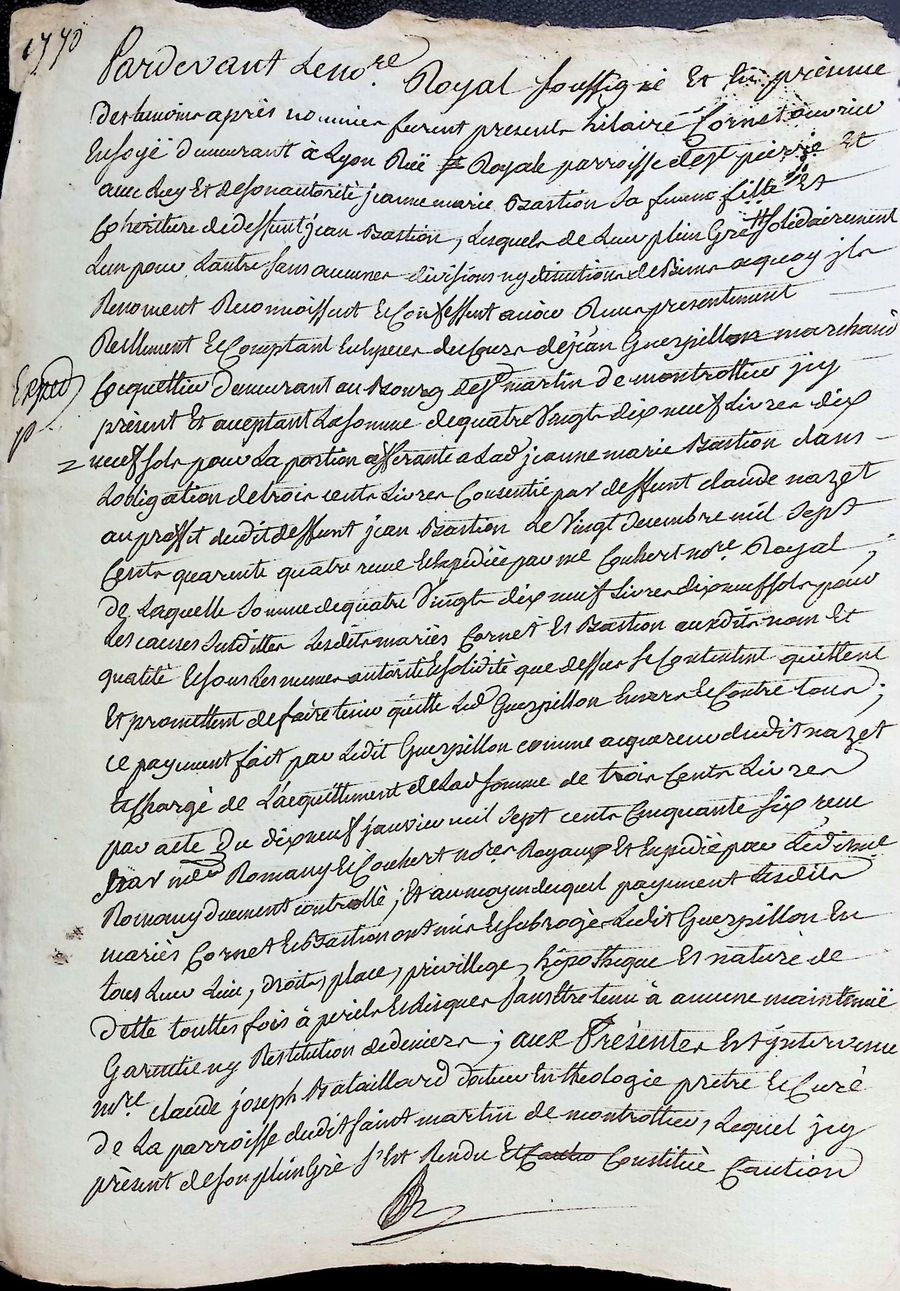 1770
Pardevant Le no.re Royal soussigné Et En présence
Des temoins après nommés furent presents hilaire Cornet ouvrier
En soyë demeurant à Lyon Ruë Royale parroisse de st pierre Et
avec Luy Et de son autorité jeanne marie Bastion sa femme fille Et
Cohéritiere de deffunt jean Bastion, Lesquels de Leur plein Gré solidairement
L'un pour L'autre sans aucunes divisions ny discutions de Biens a quoy ils
Renoncent Reconnoissent et Confessent avoir Reçu presentement
Reellement et Comptant En Especes du Cours de jéan Guerpillon marchand
Coquettier demeurant au Bourg de st martin de montrottier jcy
présent Et aceptant La somme de quatre Vingts dix neuf Livres dix
neuf sols pour La portion afferante a Lad. jeanne marie Bastion dans
L'obligation de trois cents Livres Consentie par deffunt claude nazet
au proffit dudit deffunt jean Bastion Le Vingt decembre mil sept
Cents quarente quatre reçue et Expediée par me Couhert no.re Royal ;
De Laquelle somme de quatre Vingts dix neuf Livres dix neuf sols pour
Les causes susdittes Lesdits mariés Cornet Et Bastion auxdits nom et
qualité et sous Les memes autorité et solidité que dessus se Contentent quittent
Et promettent de faire tenir quitte Led. Guerpillon Envers et Contre tous ;
ce payement fait par Ledit Guerpillon comme acquereur dudit nazet
et Chargé de L'acquittement de Lad. somme de trois Cents Livres
par acte Du dix neuf janvier mil sept cents Cinquante six reçu
par mes Romany et Couhert no.res Royaux Et Expedié par Ledit me
Romany duement controllé ; Et au moyen duquel payement Lesdits
mariés Cornet et Bastion ont mis et subrogé Ledit Guerpillon En
tous Leur Lieu, droits, place, privillege, hÿpotheque Et nature de
dette touttes fois à perils et Risques sans être tenu à aucune maintenuë
Garantie ny Restitution de deniers ; aux Présentes Est jntervenu
m.re claude joseph Bataillard docteur En theologie prêtre et Curé
de La parroisse dudit saint martin de montrottier, Lequel jcy
présent de son plein Gré s'Est Rendu Et Constitué Caution